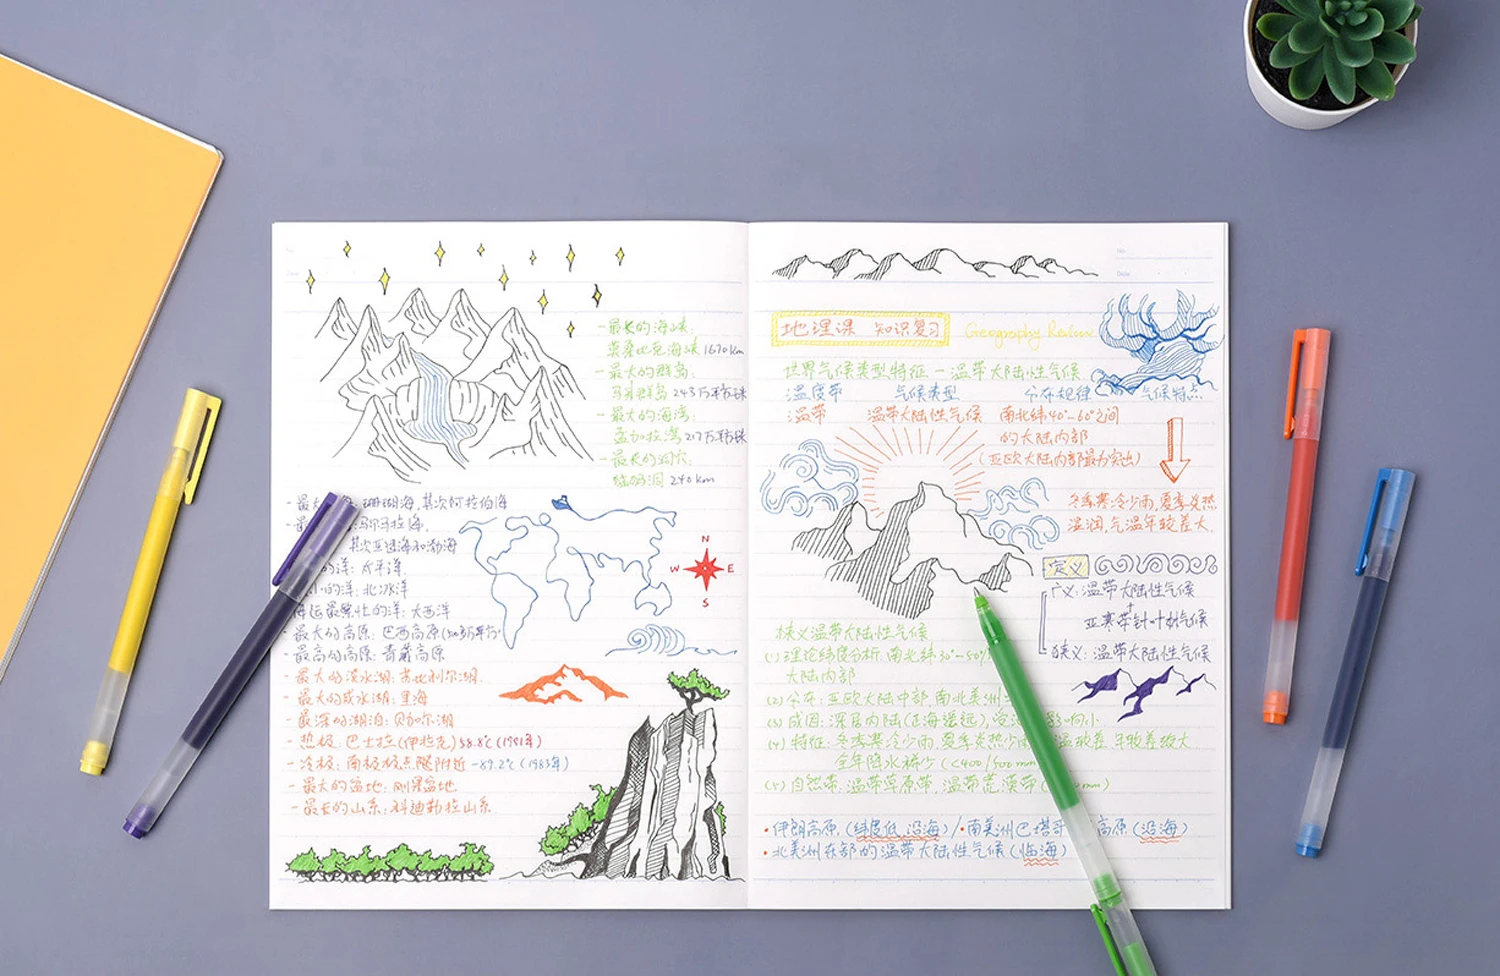 -最长的海峡:
莫桑比克海峡 1670km
-最大的群岛:
马来群岛 243万平方km
-最大的海湾:
孟加拉湾 217万平方km
-最长的洞穴:
240km
-最大 珊瑚海,其次阿拉伯海
马尔马拉海.
其次亚速海和渤海
的洋: 太平洋
的洋: 北冰洋
大西洋
-最大的高原: 巴西高原
-最高的高原: 青藏高原
-最大的淡水湖: 苏必利尔湖.
-最大的咸水湖: 里海
-最深的湖泊: 贝加尔湖
-热极: 巴士拉(伊拉克) 58.8℃
-冷极: 南极极点 附近 -89.2℃(1983年)
-最大的盆地: 刚果盆地
-最长的山系: 科迪勒拉山系.
N
W E
S
No.
Date
地理课 知识复习 Geography Review
世界气候类型特征-温带大陆性气候
温度带 气候类型 分布规律 气候特点
温带 温带大陆性气候 南北纬40°-60°之间
的大陆内部
(亚欧大陆内部最为突出)
冬季寒冷少雨,夏季炎热
湿润,气温年较差大.
定义
广义: 温带大陆性气候
+
亚寒带针叶林气候
狭义: 温带大陆性气候
狭义温带大陆性气候
(1)理论纬度分析: 南北纬
大陆内部
(2)分布: 亚欧大陆中部,南北美洲
(3)成因: 深居内陆(远海遥远), 影响小
(4)特征: 冬季寒冷少雨,夏季炎热少雨 温较差 年较差较大.
全年降水稀少(<400/500mm
(5)自然带: 温带草原带,温带荒漠带( mm)
•伊朗高原(纬度低 沿海)/•南美洲巴塔哥 高原(沿海)
•北美洲东部的温带大陆性气候(临海)